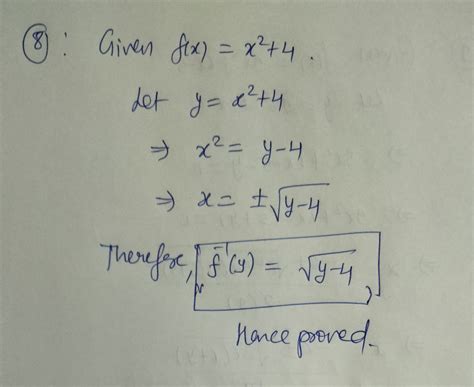 ⑧ : Given f(x) = x²+4 .
Let y = x²+4
⇒ x² = y-4
⇒ x = ±√(y-4)
Therefore, f⁻¹(y) = √(y-4) ,
Hance proved.